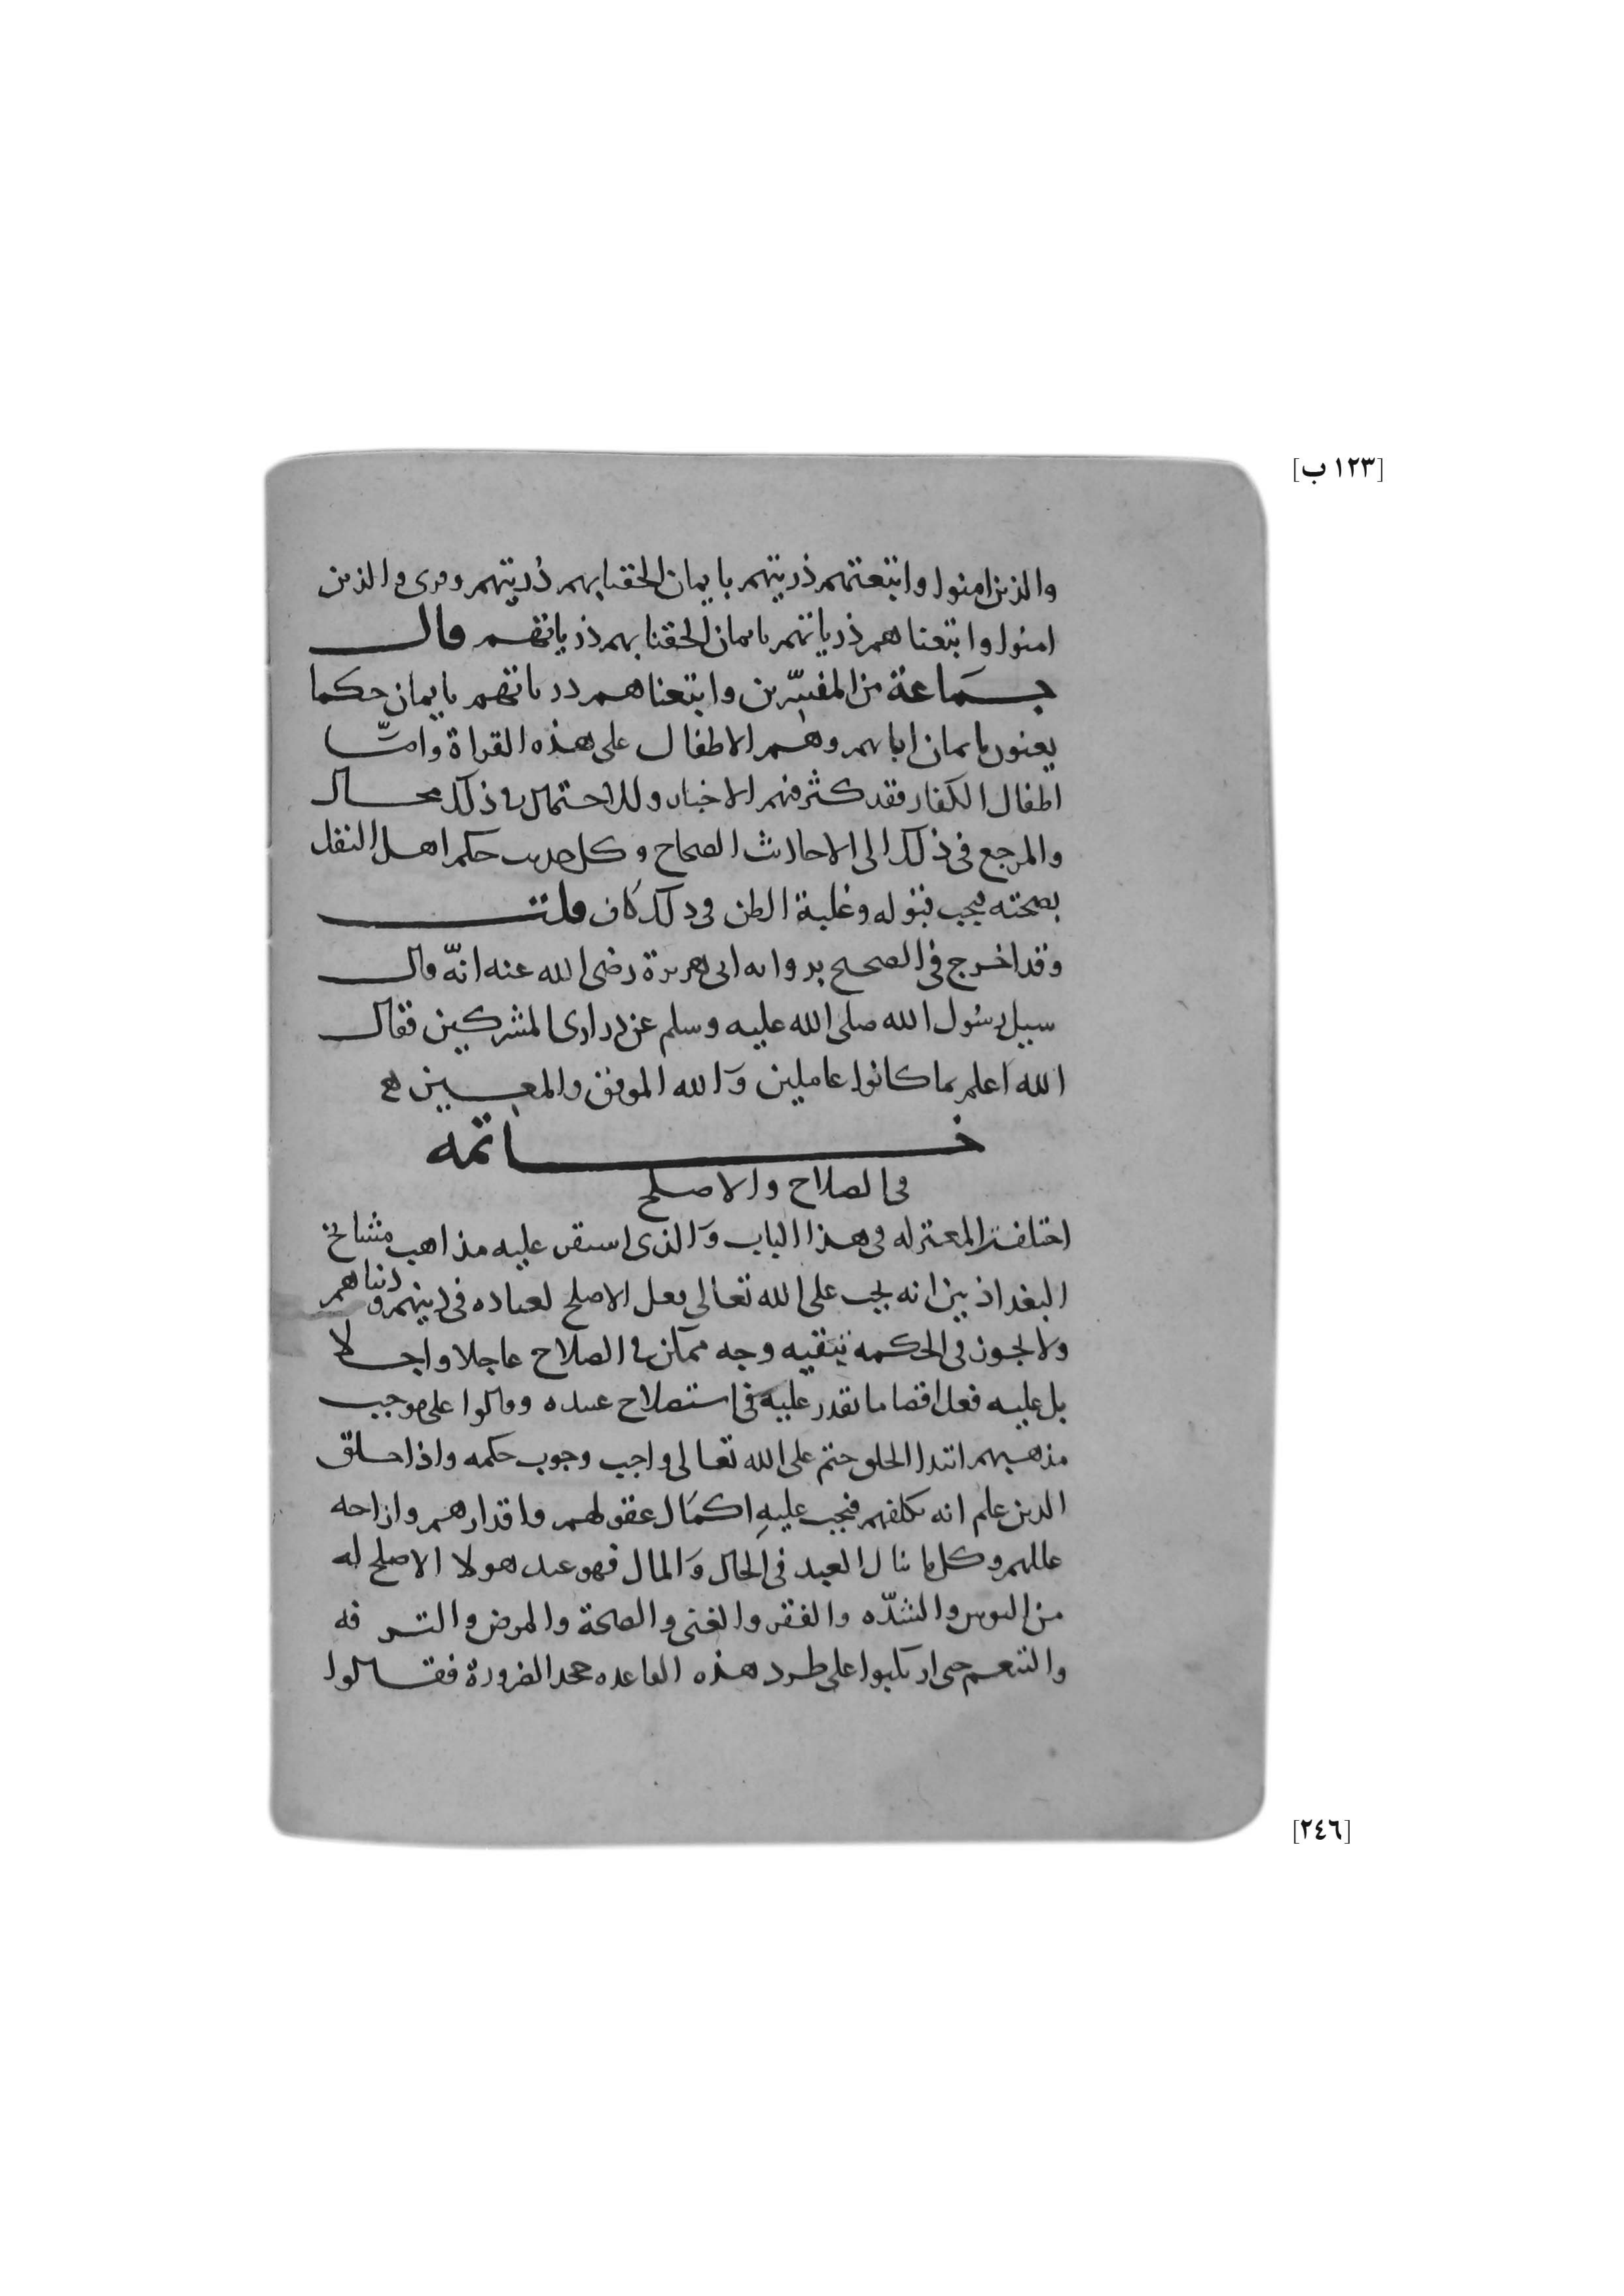 [١٢٣ ب]
والذين امنوا واتبعتهم ذريتهم بايمان الحقنا بهم ذريتهم وقرى والذين
امنوا واتبعناهم ذرياتهم بايمان الحقنا بهم ذرياتهم قال
جماعة من المفسّرين واتبعناهم ذرياتهم بايمان حكما
يعنون بايمان ابايهم وهم الاطفال على هذه القراة وامّا
اطفال الكفار فقد كثر فيهم الاخبار وللاحتمال في ذلك مجال
والمرجع في ذلك الى الاحاديث الصحاح وكل حديث حكم اهل النقل
بصحته فيجب قبوله وغلبة الظن في ذلك كاف قلت
وقد اخرج في الصحيح برواية ابي هريرة رضى الله عنه انّه قال
سيل رسول الله صلى الله عليه وسلم عن ذراري المشركين فقال
الله اعلم بما كانوا عاملين والله الموفق والمعين
خاتمه
في الصلاح والاصلح
اختلفت المعتزله في هذا الباب والذي استقر عليه مذاهب مشايخ
البغداذيين انه يجب على الله تعالى فعل الاصلح لعباده في دينهم ودنياهم
ولا يجوز في الحكمه تبقيه وجه ممكن في الصلاح عاجلا واجلا
بل عليه فعل اقصا ما يقدر عليه في استصلاح عبده وقالوا على موجب
مذهبهم ابتدا الخلق حتم على الله تعالى واجب وجوب حكمه واذا خلق
الذين علم انه يكلفهم فيجب عليه اكمال عقولهم واقدارهم وازاحه
عللهم وكل ما ينال العبد في الحال والمال فهو عند هولا الاصلح له
من البوس والشدّه والفقر والغنى والصحة والمرض والترفه
والتنعم حتى ارتكبوا على طرد هذه القاعده جحد الضرورة فقالوا
[٢٤٦]